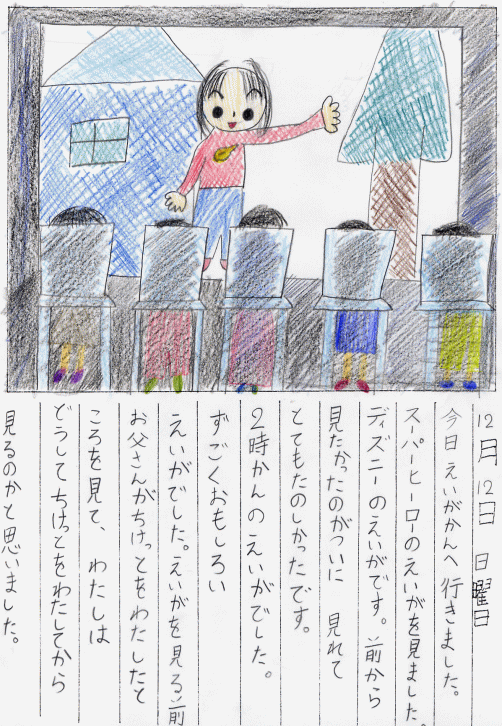 12月12日 日曜日
今日えいがかんへ行きました。
スーパーヒーローのえいがを見ました。
ディズニーのえいがです。前から
見たかったのがついに 見れて
とてもたのしかったです。
2時かんのえいがでした。
すごくおもしろい
えいがでした。えいがを見る前
お父さんがちけっとをわたしたと
ころを見て、わたしは
どうしてちけっとをわたしてから
見るのかと思いました。